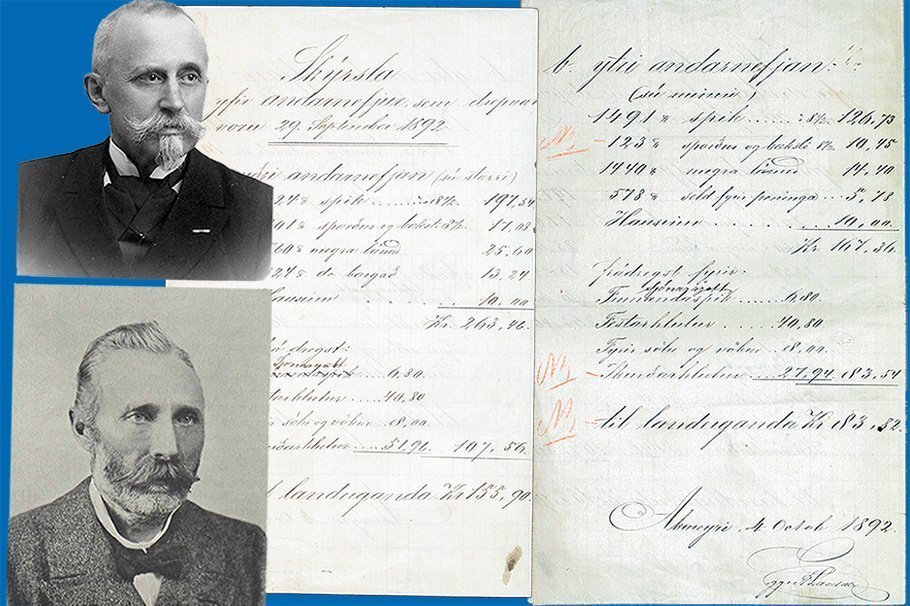 Skýrsla
yfir andarnefjur, sem drepnar
voru 29. September 1892
andarnefjan (sú stærri)
24 ℔ spik 8 197,54
91 ℔ sporður og bæksli 8 11,08
60 ℔ megra 25,60
24 ℔ do borgað 13,24
Hausinn 10,00
Kr. 263,46
dregst:
6,80
festarhlutur 40,80
sölu og vöku 8,00
51,96 107,56
landeiganda Kr 155,90
b. ytri andarnefjan:
(sú minni)
1491 ℔ spik 8 126,73
123 ℔ sporður og bæksli 8 10,45
1440 ℔ megra 14,40
578 ℔ seld fyrir peninga 5,78
Hausinn 10,00
Kr. 167,36
frádregst fyrir:
Finnandaspik 6,80
Festarhlutur 40,80
Fyrir sölu og vöku 8,00
Skurðarhlutur 27,94 83,54
til landeiganda Kr 83,82
Akureyri, 4 Octob 1892.